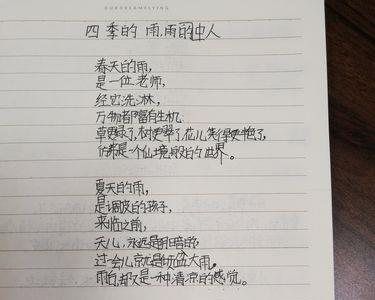 OURDREAMFLYING
四季的雨,雨中人
春天的雨,
是一位老师,
经它洗淋,
万物都富有生机:
草更绿了,树更翠了,花儿笑得更艳了,
仿佛是一个仙境般的世界。
夏天的雨,
是调皮的孩子,
来临之前,
天儿,永远是阴暗的
过一会儿就是倾盆大雨。
雨白,却又是一种清凉的感觉。